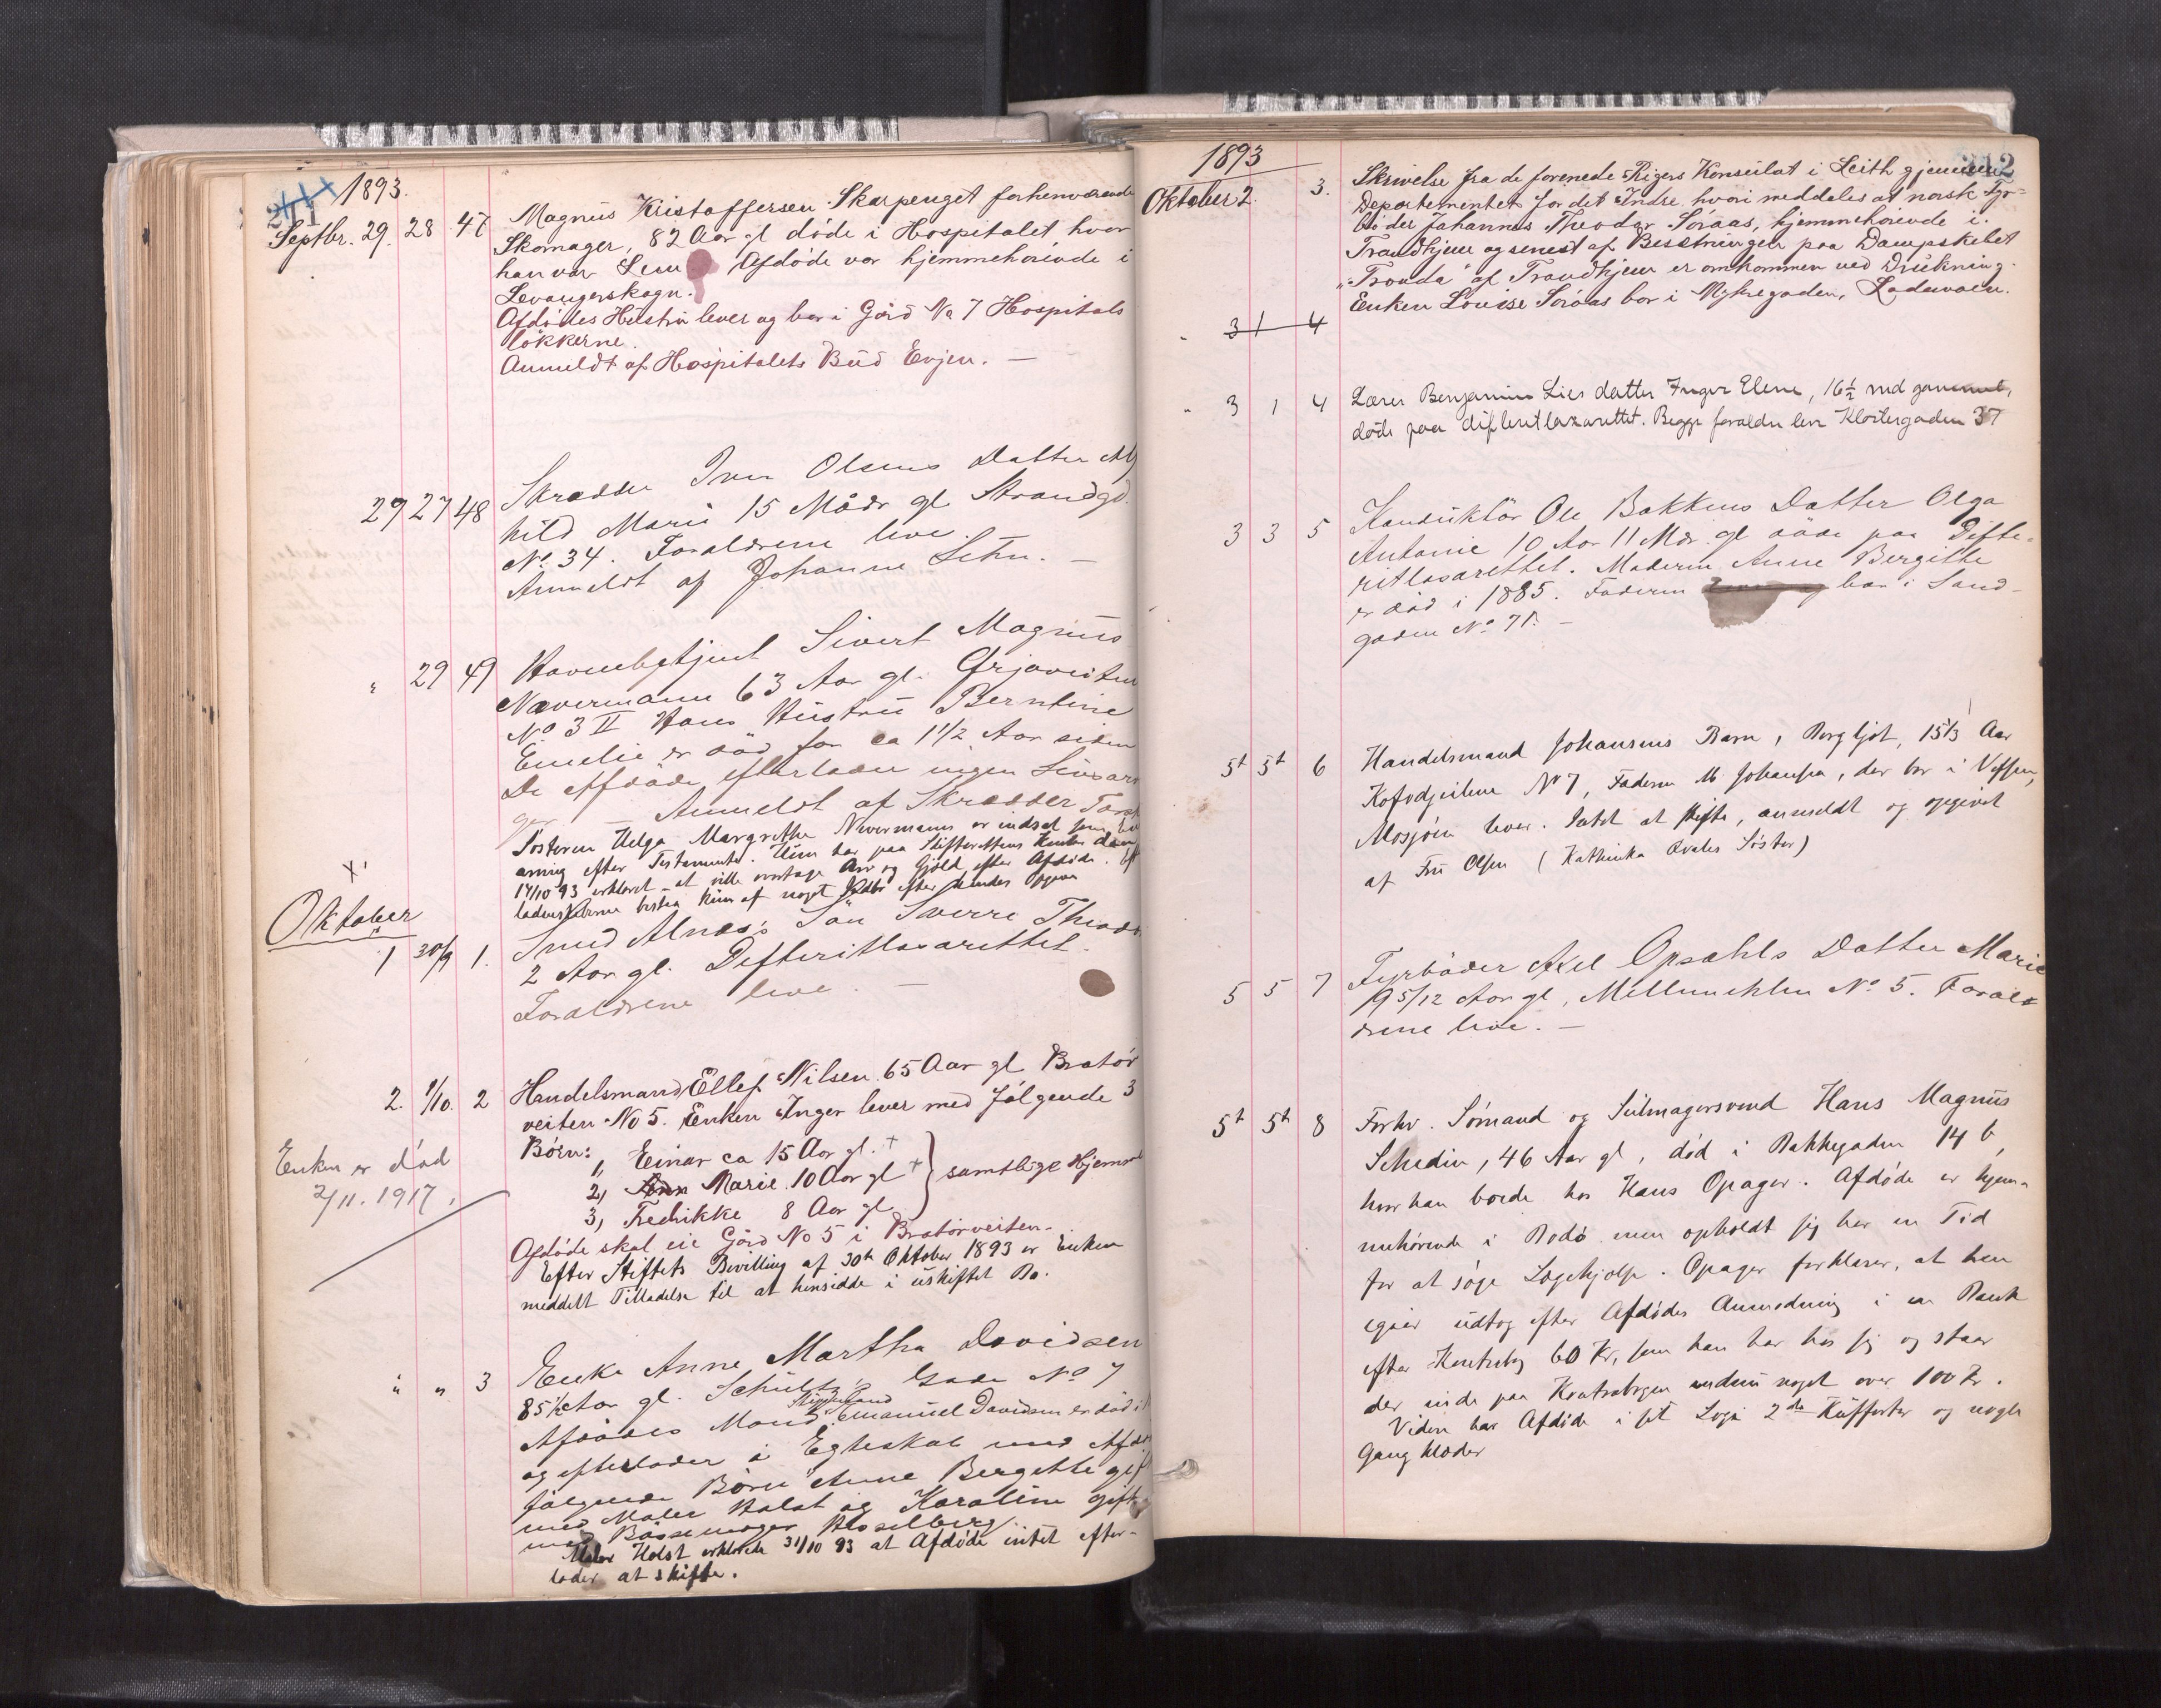 1893.
Septbr. 29. 28. 47 Magnus Kristoffersen Skarpenget forhenværende
Skomager, 82 Aar gl døde i Hospitalet hvor
han var Lem Afdøde var hjemmehørende i
Levangerskogn.
Afdødes Hustru lever og bor i Gård No 7 Hospitals
løkkerne.
Anmeldt af Hospitalets Bud Evjen. —
29 27 48 Skrædder Iver Olsens Datter
hild Marie 15 Mådr gl Strandgd.
No. 34. Forældrene leve.
Anmeldt af Johanne Lehn. —
" 29 49 Havnebetjent Sivert Magnus
Nævermann 63 Aar gl.
No 3 II Hans Hustru Berntine
Emelie er død for ca 1 1/2 Aar siden
De afdøde efterlader ingen Livsar
ger — Anmeldt af Skrædder
Søsteren Helga Margrethe Nævermann er indsat som
arving efter Testamente. Hun har paa Skifterettens Kontor den
17/10 93 erklæret at ville overtage Arv og Gjæld efter Afdøde.
bestaa kun af noget efter hendes Opgave
Oktober
1 30/9 1. Smed Alnæs's Søn Sverre
2 Aar gl. Defteritlasarettet.
Forældrene leve. —
2. 1/10. 2 Handelsmand Ellef Nilsen 65 Aar gl Bratør
veiten No 5. Enken Inger lever med følgende 3
Børn:
1, Einar ca 15 Aar gl. +
2, Marie 10 Aar gl + samtlige Hjemme
3, Fredrikke 8 Aar gl
Afdøde skal eie Gård No 5 i Bratørveiten.
Efter Stiftets Bevilling af 30te Oktober 1893 er Enken
meddelt Tilladelse til at hensidde i uskiftet Bo.
Enken er død
2/11. 1917.
" " 3 Enke Anne Martha Davidsen
85 1/2 Aar gl. Schultz's Gade No 7
Afdødes Mand Emanuel Davidsen er død
og efterlader i Egteskab med Afdø
følgende Børn Anne Bergitte gif
med Maler Holst og Karoline gift
med Bøssemager Hasselberg
Maler Holst erklærede 31/10 93 at Afdøde intet efter-
lader at skifte.
1893
Oktober 2. 3. Skrivelse fra de forenede Rigers Konsulat i Leith gjennem
Departementet for det Indre, hvori meddeles at norsk Fyr-
bøder Johannes Theodor Søraas, hjemmehørende i
Trondhjem og senest af Besetningen paa Dampskibet
"Tronda" af Trondhjem er omkommen ved Drukning.
Enken Louise Søraas bor i Mykegaden, Lademoen.
" 3 1 4
" 3 1 4 Lærer Benjamin Lies datter Inger Elene, 16 1/2 md gammel,
døde paa difteritlazarettet. Begge forældre leve Klostergaden 37
3 3 5 Konduktør Ole Bakkens Datter Olga
Antonie 10 Aar 11 Mdr. gl døde paa Difte-
ritlasarettet. Moderen Anne Bergitte
er død i 1885. Faderen bor i Sand-
gaden No 71. —
5t 5t 6 Handelsmand Johansens Barn, Borgljot, 15 1/3 Aar
No 7, Faderen M. Johansen, der bor i Vefsen,
Mosjøen lever. Intet at skifte, anmeldt og opgivet
af Fru Olsen (Kathinka Søster)
5 5 7 Fyrbøder Axel Opsahls Datter Marie
9 5/12 Aar gl, Mellemiklen No 5. Foræl
drene leve. —
5t 5t 8 Forhv. Sømand og Seilmagersvend Hans Magnus
Schedin, 46 Aar gl, død i Bakkegaden 14 b,
hvor han boede hos Hans Opager. Afdøde er hjem-
mehørende i Bodø men opholdt sig her en Tid
for at søge Lægehjælp. Opager forklarer, at han
igaar udtog efter Afdødes Anmodning i en Bank
efter Kontrabog 60 Kr, som han har hos sig og staar
der inde paa Kontrabogen endnu noget over 100 Kr.
Videre har Afdøde i sit Logi 2de Kufferter og nogle
Gangklæder